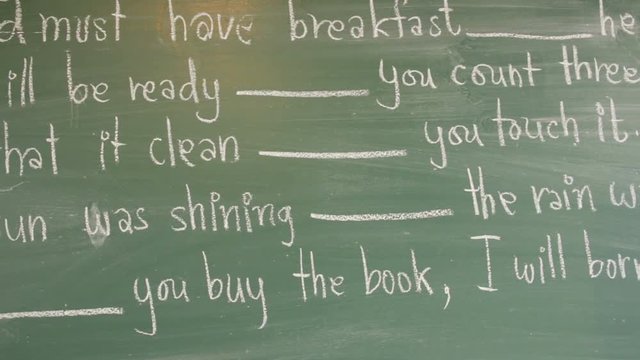 d must have breakfast ______ he
ill be ready ______ you count three
hat it clean ______ you touch it
un was shining ______ the rain w
______ you buy the book, I will born